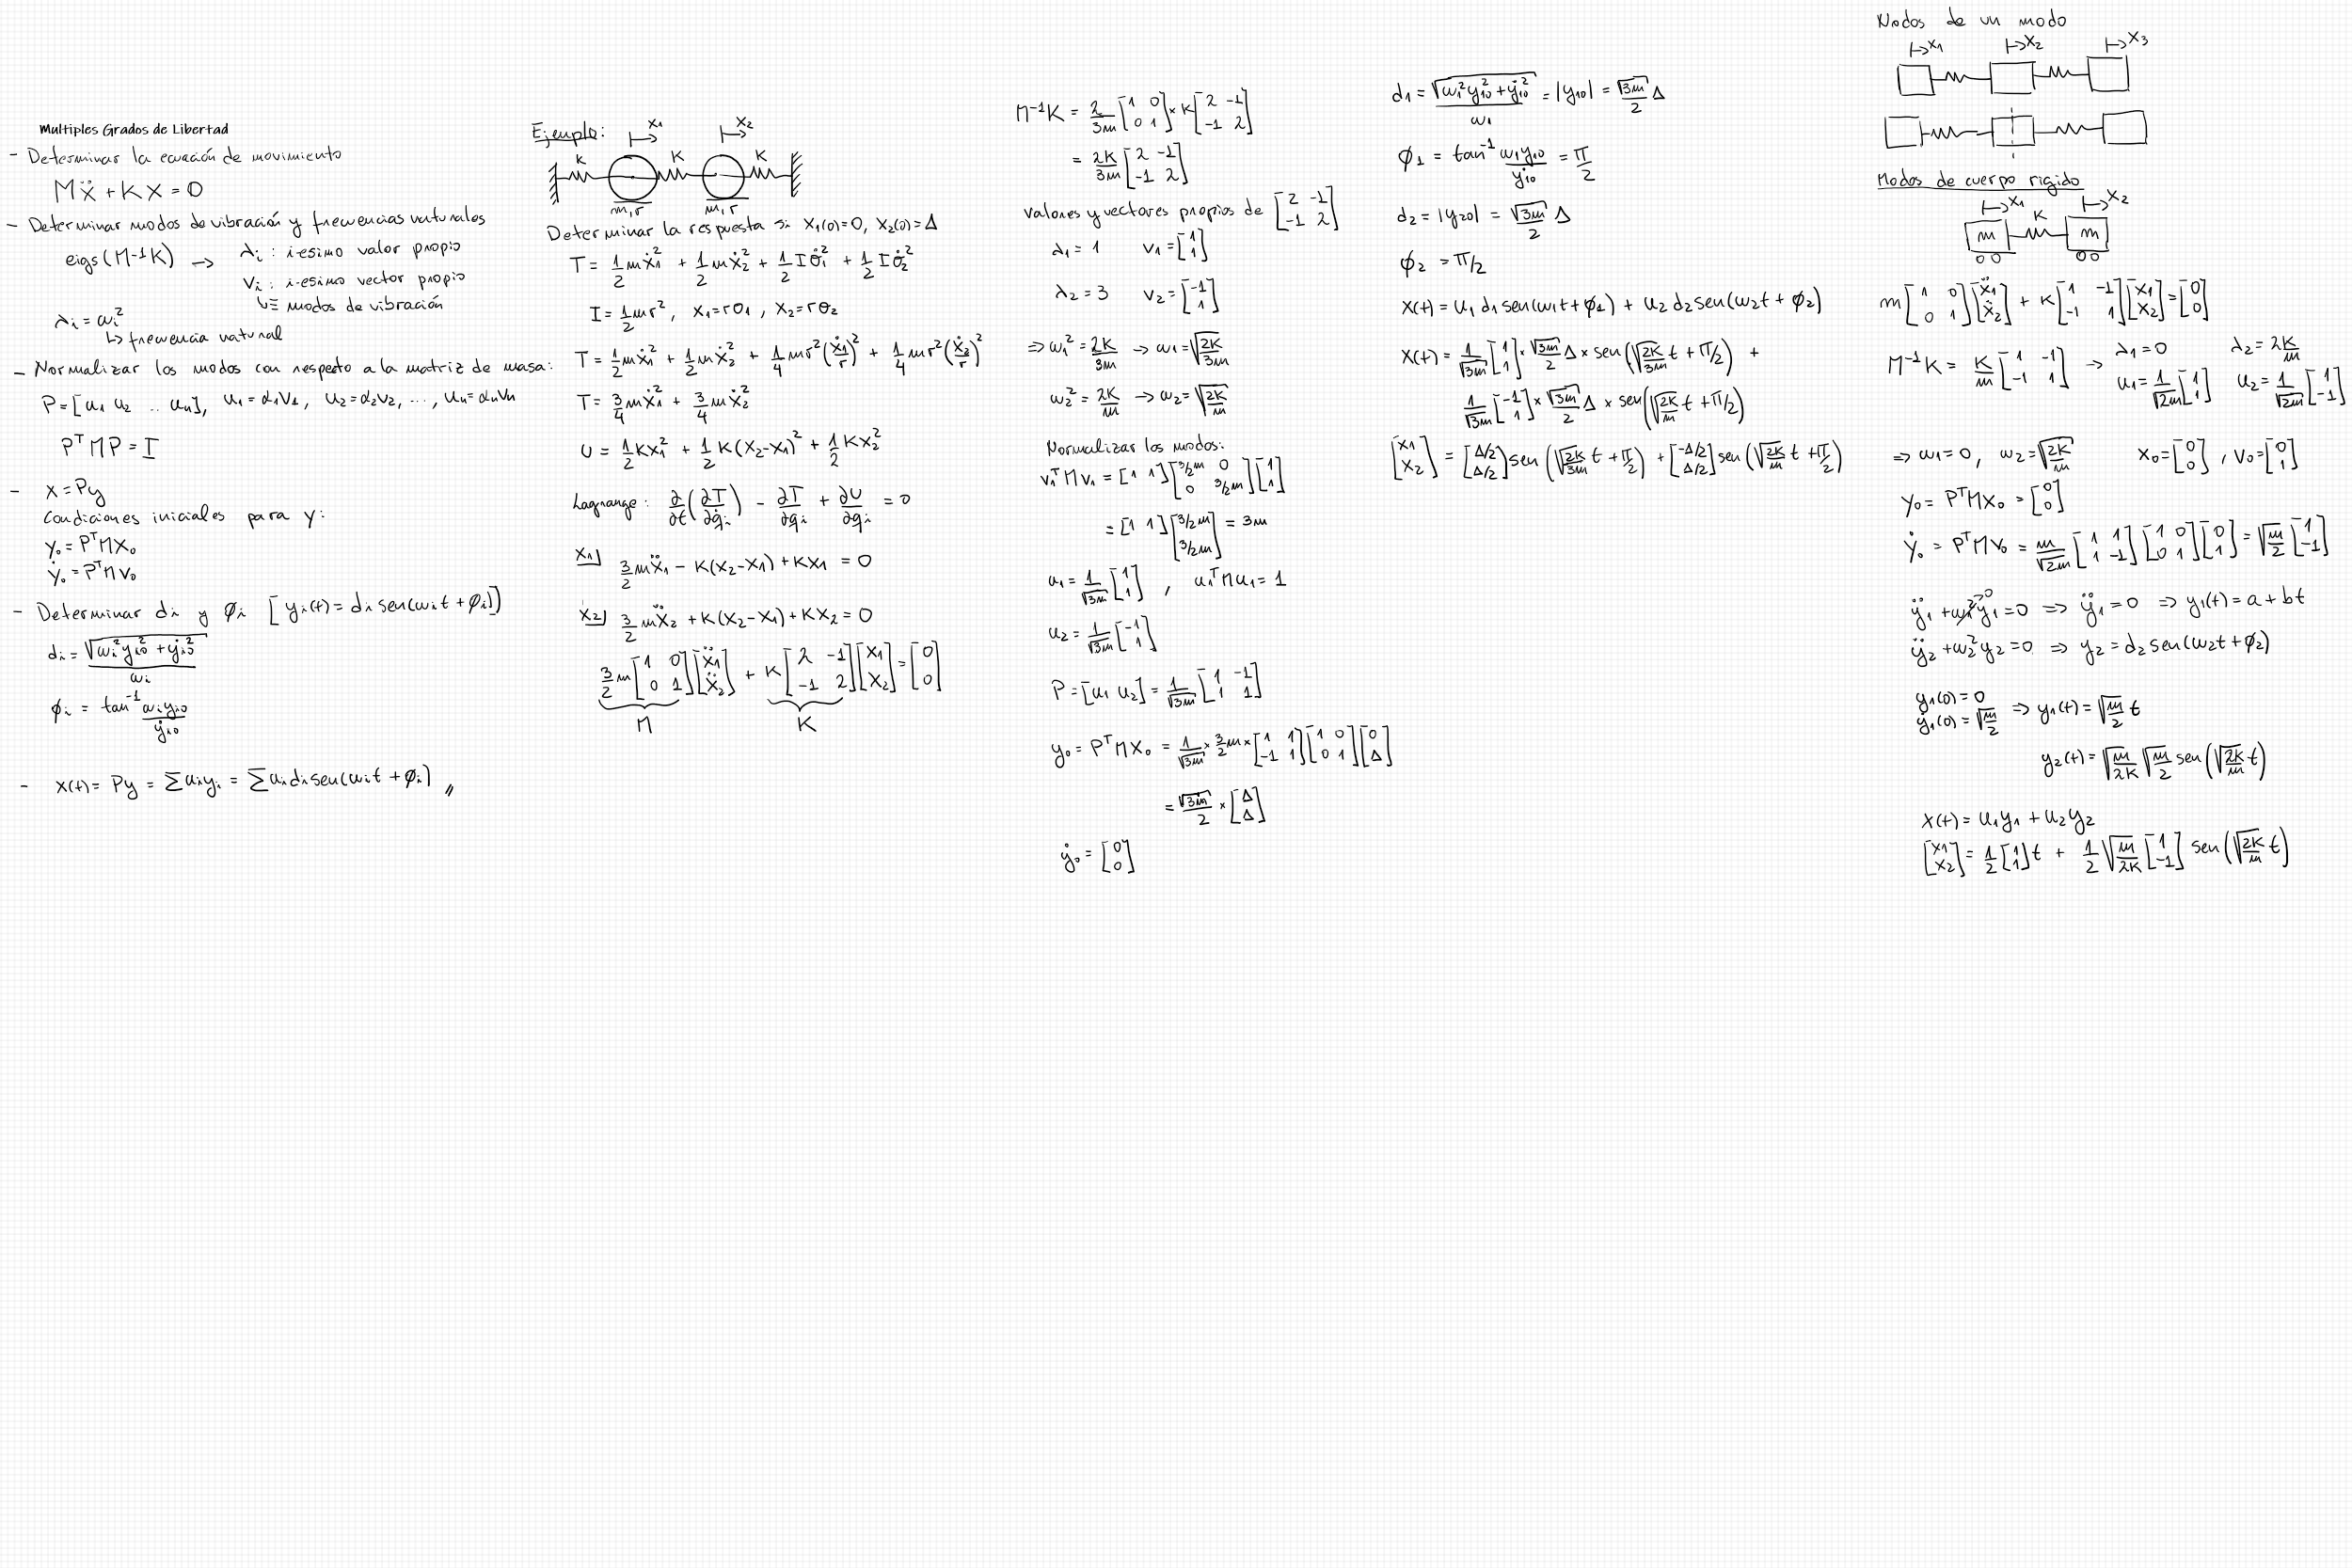 Multiples Grados de Libertad
- Determinar la ecuación de movimiento
MẌ + KX = 0
- Determinar modos de vibración y frecuencias naturales
eigs(M⁻¹K) → λi : i-esimo valor propio
vi : i-esimo vector propio
↳ ≡ modos de vibración
λi = ωi²
↳ frecuencia natural
- Normalizar los modos con respecto a la matriz de masa:
P = [u1 u2 .. un], u1 = α1v1, u2 = α2v2, ..., un = αnvn
PᵀMP = I
- X = Py
Condiciones iniciales para y:
y₀ = PᵀMX₀
ẏ₀ = PᵀMV₀
- Determinar di y ϕi [yi(t) = di sen(ωit + ϕi)]
di = √(ωi²yi0² + ẏi0²) / ωi
ϕi = tan⁻¹ ωiyi0 / ẏi0
- X(t) = Py = ∑uiyi = ∑uidisen(ωit + ϕi) //
Ejemplo: x1 x2
K K K
m,r m,r
Determinar la respuesta si X1(0)=0, X2(0)=Δ
T = 1/2 mẋ1² + 1/2 mẋ2² + 1/2 Iθ̇1² + 1/2 Iθ̇2²
I = 1/2 mr², x1=rθ1, x2=rθ2
T = 1/2 mẋ1² + 1/2 mẋ2² + 1/4 mr²(ẋ1/r)² + 1/4 mr²(ẋ2/r)²
T = 3/4 mẋ1² + 3/4 mẋ2²
U = 1/2 Kx1² + 1/2 K(x2-x1)² + 1/2 Kx2²
Lagrange: ∂/∂t (∂T/∂q̇i) - ∂T/∂qi + ∂U/∂qi = 0
x1] 3/2 mẍ1 - K(x2-x1) + Kx1 = 0
x2] 3/2 mẍ2 + K(x2-x1) + Kx2 = 0
3/2 m [1 0; 0 1] [ẍ1; ẍ2] + K [2 -1; -1 2] [x1; x2] = [0; 0]
M K
M⁻¹K = 2/3m [1 0; 0 1] × K [2 -1; -1 2]
= 2K/3m [2 -1; -1 2]
Valores y vectores propios de [2 -1; -1 2]
λ1 = 1 v1 = [1; 1]
λ2 = 3 v2 = [-1; 1]
⇒ ω1² = 2K/3m → ω1 = √(2K/3m)
ω2² = 2K/m → ω2 = √(2K/m)
Normalizar los modos:
v1ᵀMv1 = [1 1] [3/2m 0; 0 3/2m] [1; 1]
= [1 1] [3/2m; 3/2m] = 3m
u1 = 1/√3m [1; 1] , u1ᵀMu1 = 1
u2 = 1/√3m [-1; 1]
P = [u1 u2] = 1/√3m [1 -1; 1 1]
y₀ = PᵀMX₀ = 1/√3m × 3/2 m × [1 1; -1 1] [1 0; 0 1] [0; Δ]
= √3m/2 × [Δ; Δ]
ẏ₀ = [0; 0]
d1 = √(ω1²y10² + ẏ10²) / ω1 = |y10| = √3m/2 Δ
ϕ1 = tan⁻¹ ω1y10 / ẏ10 = π/2
d2 = |y20| = √3m/2 Δ
ϕ2 = π/2
X(t) = u1 d1 sen(ω1t + ϕ1) + u2 d2 sen(ω2t + ϕ2)
X(t) = 1/√3m [1; 1] × √3m/2 Δ × sen(√(2K/3m) t + π/2) +
1/√3m [-1; 1] × √3m/2 Δ × sen(√(2K/m) t + π/2)
[x1; x2] = [Δ/2; Δ/2] sen(√(2K/3m) t + π/2) + [-Δ/2; Δ/2] sen(√(2K/m) t + π/2)
Nodos de un modo
x1 x2 x3
Modos de cuerpo rigido
x1 x2
m K m
m [1 0; 0 1] [ẍ1; ẍ2] + K [1 -1; -1 1] [x1; x2] = [0; 0]
M⁻¹K = K/m [1 -1; -1 1] → λ1 = 0 λ2 = 2K/m
u1 = 1/√2m [1; 1] u2 = 1/√2m [1; -1]
⇒ ω1 = 0, ω2 = √(2K/m) X₀ = [0; 0], V₀ = [0; 1]
y₀ = PᵀMX₀ = [0; 0]
ẏ₀ = PᵀMV₀ = m/√2m [1 1; 1 -1] [1 0; 0 1] [0; 1] = √(m/2) [1; -1]
ÿ1 + ω1²y1 = 0 ⇒ ÿ1 = 0 ⇒ y1(t) = a + bt
ÿ2 + ω2²y2 = 0 ⇒ y2 = d2 sen(ω2t + ϕ2)
y1(0) = 0
ẏ1(0) = √(m/2) ⇒ y1(t) = √(m/2) t
y2(t) = √(m/2K) √(m/2) sen(√(2K/m) t)
X(t) = u1y1 + u2y2
[x1; x2] = 1/2 [1; 1] t + 1/2 √(m/2K) [1; -1] sen(√(2K/m) t)